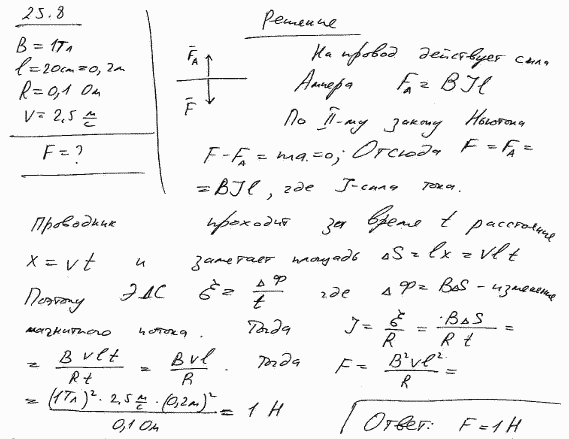 25.8
B = 1Тл
l = 20см = 0,2м
R = 0,1 Ом
V = 2,5 м/с
F = ?
F̄_A
F̄
Решение
На провод действует сила
Ампера F_A = BIl
По II-му закону Ньютона
F - F_A = ma = 0; Отсюда F = F_A =
= BIl, где I-сила тока.
Проводник проходит за время t расстояние
x = vt и заметает площадь ΔS = lx = vlt
Поэтому ЭДС ℰ = ΔФ/t где ΔФ = BΔS - изменение
магнитного потока. Тогда I = ℰ/R = BΔS/(R t) =
= Bvlt/(Rt) = Bvl/R. Тогда F = B²vl²/R =
= (1Тл)² · 2,5 м/с · (0,2м)²/0,1 Ом = 1 Н
Ответ: F = 1 Н